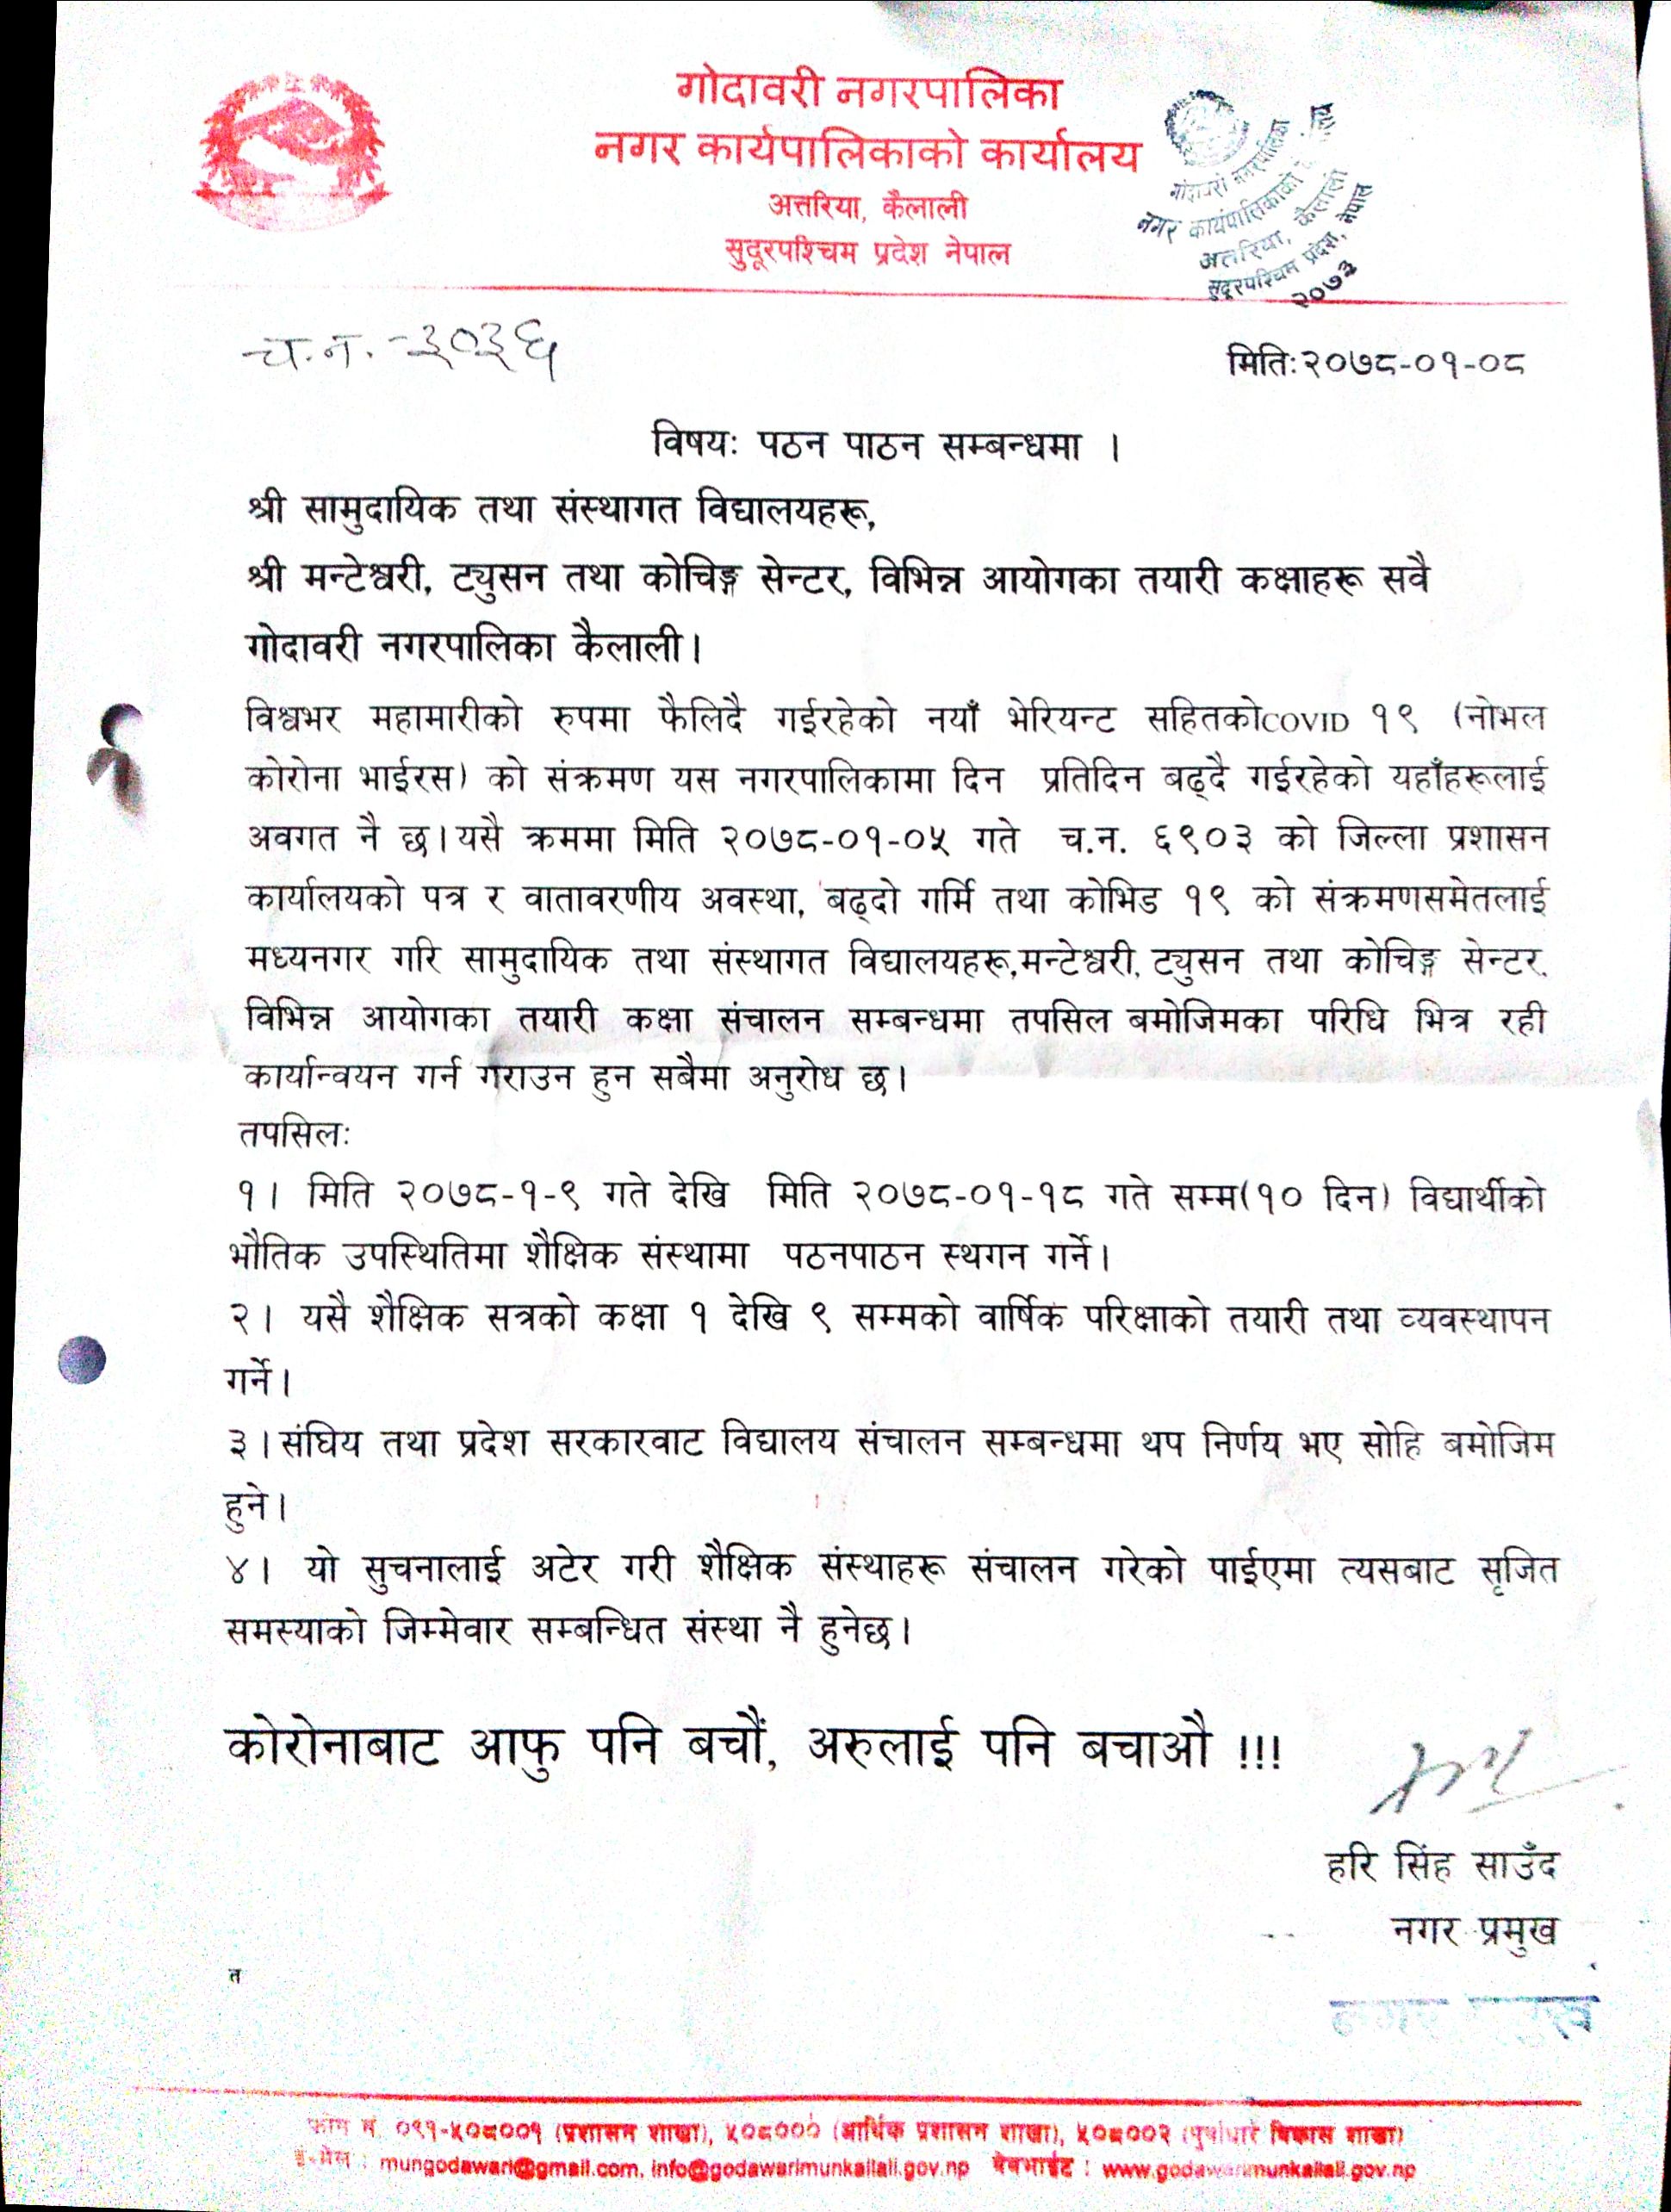 गोदावरी नगरपालिका
नगर कार्यपालिकाको कार्यालय
अत्तरिया, कैलाली
सुदूरपश्चिम प्रदेश नेपाल
गोदावरी नगरपालिका
नगर कार्यपालिकाको
अत्तरिया, कैलाली
सुदूरपश्चिम प्रदेश, नेपाल
२०७३
च.न. -३०३६
मिति:२०७८-०१-०८
विषयः पठन पाठन सम्बन्धमा ।
श्री सामुदायिक तथा संस्थागत विद्यालयहरू,
श्री मन्टेश्वरी, ट्युसन तथा कोचिङ्ग सेन्टर, विभिन्न आयोगका तयारी कक्षाहरू सवै
गोदावरी नगरपालिका कैलाली।
विश्वभर महामारीको रुपमा फैलिदै गईरहेको नयाँ भेरियन्ट सहितकोCOVID १९ (नोभल
कोरोना भाईरस) को संक्रमण यस नगरपालिकामा दिन प्रतिदिन बढ्दै गईरहेको यहाँहरूलाई
अवगत नै छ।यसै क्रममा मिति २०७८-०१-०५ गते च.न. ६९०३ को जिल्ला प्रशासन
कार्यालयको पत्र र वातावरणीय अवस्था, बढ्दो गर्मि तथा कोभिड १९ को संक्रमणसमेतलाई
मध्यनगर गरि सामुदायिक तथा संस्थागत विद्यालयहरू,मन्टेश्वरी, ट्युसन तथा कोचिङ्ग सेन्टर,
विभिन्न आयोगका तयारी कक्षा संचालन सम्बन्धमा तपसिल बमोजिमका परिधि भित्र रही
कार्यान्वयन गर्न गराउन हुन सबैमा अनुरोध छ।
तपसिलः
१। मिति २०७८-१-९ गते देखि मिति २०७८-०१-१८ गते सम्म(१० दिन) विद्यार्थीको
भौतिक उपस्थितिमा शैक्षिक संस्थामा पठनपाठन स्थगन गर्ने।
२। यसै शैक्षिक सत्रको कक्षा १ देखि ९ सम्मको वार्षिक परिक्षाको तयारी तथा व्यवस्थापन
गर्ने।
३।संघिय तथा प्रदेश सरकारवाट विद्यालय संचालन सम्बन्धमा थप निर्णय भए सोहि बमोजिम
हुने।
४। यो सुचनालाई अटेर गरी शैक्षिक संस्थाहरू संचालन गरेको पाईएमा त्यसबाट सृजित
समस्याको जिम्मेवार सम्बन्धित संस्था नै हुनेछ।
कोरोनाबाट आफु पनि बचौं, अरुलाई पनि बचाऔ !!!
हरि सिंह साउँद
नगर प्रमुख
त
नगर प्रमुख
फोन नं. ०९१-५०८००१ (प्रशासन शाखा), ५०८००० (आर्थिक प्रशासन शाखा), ५०८००२ (पुर्वाधार विकास शाखा)
ई-मेल : mungodawari@gmail.com, info@godawarimunkailali.gov.np वेबसाईट : www.godawarimunkailali.gov.np